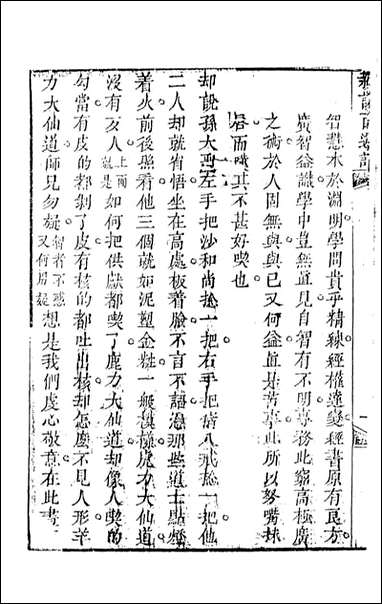 智慧本於淵明學問貴乎精練經權達變經書原有良方
廣智益識學中豈無道見自智有不明專務此窮高極廣
之術於人固無與與已又何益道是著
此所以努嘴抹
唇而嘰其不甚好喫也
却說孫大聖左手把沙和尚捻一把右手把猪八戒捻一把他
二人却就省悟坐在高處板著臉不言不語憑那些道士點燈
着火前後照看他三個就如泥塑金粧一般模樣虎力大仙道
沒有歹人如何把供獻都喫了鹿力大仙道却像人喫的
勾當有皮的都剝了皮有核的都吐出核却怎麽不見人形羊
力大仙道師兄勿疑智者不惑又何用疑想是我們虔心敬意在此晝